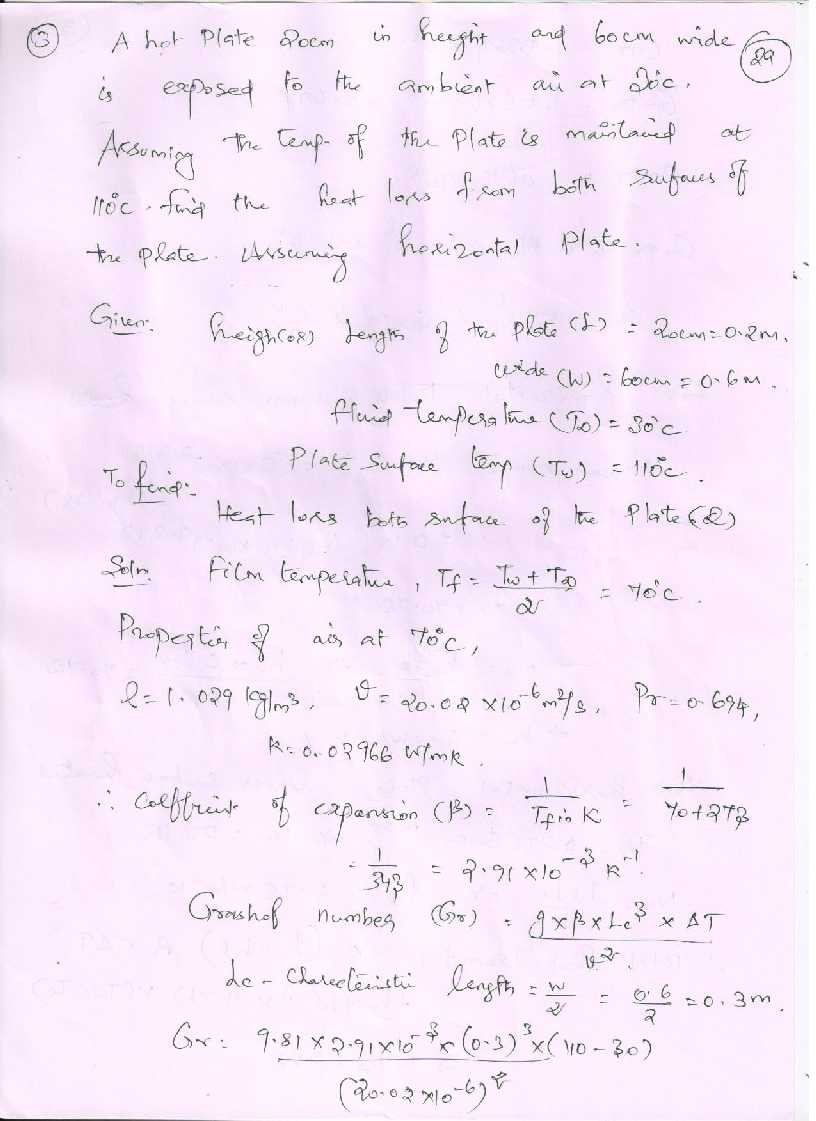 ③ A hot Plate 20cm in height and 60cm wide
29
is exposed to the ambient air at 30°c.
Assuming the temp. of the plate is maintained at
110°c. find the heat loss from both surfaces of
the plate. Assuming horizontal Plate.
Given: heigh(or) Length of the plate (L) = 20cm = 0.2m.
wide (W) = 60cm = 0.6m.
fluid temperature (T∞) = 30°c
Plate Surface temp (Tw) = 110°c.
To find:-
Heat loss both surface of the Plate (Q)
Soln. Film temperature, Tf = Tw + T∞ / 2 = 70°c.
Properties of air at 70°c,
ρ = 1.029 kg/m³, ν = 20.02 × 10⁻⁶ m²/s, Pr = 0.694,
K = 0.02966 W/mK.
∴ Coefficient of expansion (β) = 1 / Tf in K = 1 / 70+273
= 1 / 343 = 2.91 × 10⁻³ K⁻¹.
Grashof number (Gr) = g × β × Lc³ × ΔT / ν².
Lc - Charecteristic length = W / 2 = 0.6 / 2 = 0.3m.
Gr = 9.81 × 2.91 × 10⁻³ × (0.3)³ × (110 - 30) / (20.02 × 10⁻⁶)²